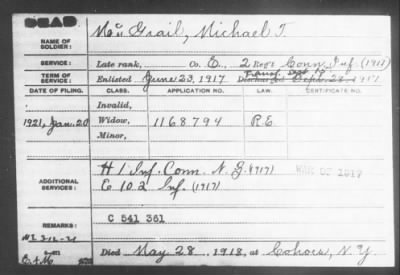 DEAD
NAME OF SOLDIER: McGrail, Michael T.
SERVICE: Late rank, Co. E, 2 Reg't Conn Inf. (1917)
TERM OF SERVICE: Enlisted June 23, 1917 1917
DATE OF FILING. CLASS. APPLICATION NO. LAW. CERTIFICATE NO.
Invalid,
1921, Jan. 20 Widow, 1168794 R.E.
Minor,
ADDITIONAL SERVICES: H 1 Inf. Conn. N. G. (1917) WAR OF 1917
E 102 Inf. (1917)
REMARKS: C 541 361
Died May 28, 1918, at Cohoes, N.Y.